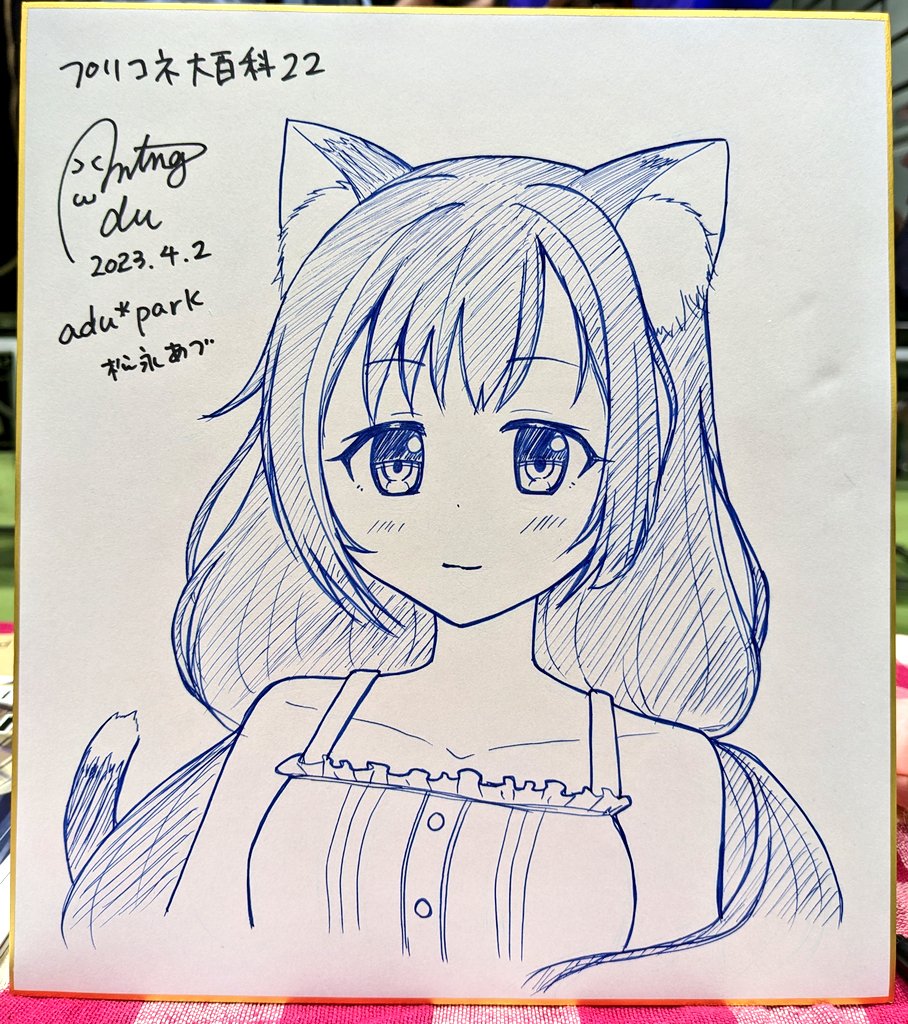 プリコネ大百科22
du
2023.4.2
adu*park
松永あづ